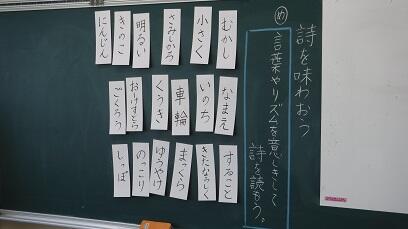 詩を味わおう
め
言葉やリズムを意しきして
詩を読もう。
むかし
小さく
明るい
きのこ
にんじん
なまえ
いのち
車輪
くうき
おーけすとら
ごくろう
すること
きたならしく
まっくら
ゆうやけ
のっこり
しっぽ